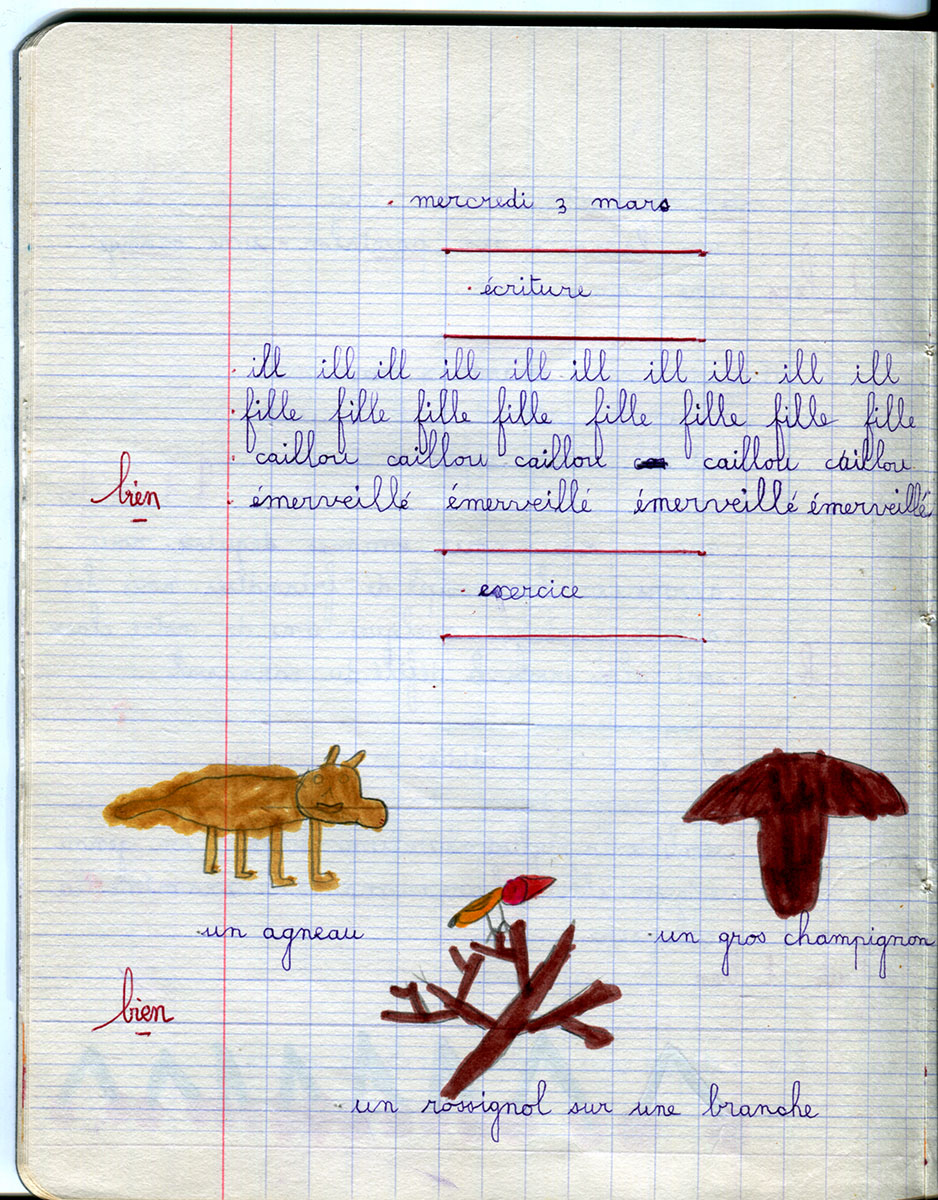 mercredi 3 mars
écriture
ill ill ill ill ill ill ill ill ill ill
fille fille fille fille fille fille fille fille
caillou caillou caillou caillou caillou
bien
émerveillé émerveillé émerveillé émerveillé
exercice
un agneau
un gros champignon
bien
un rossignol sur une branche